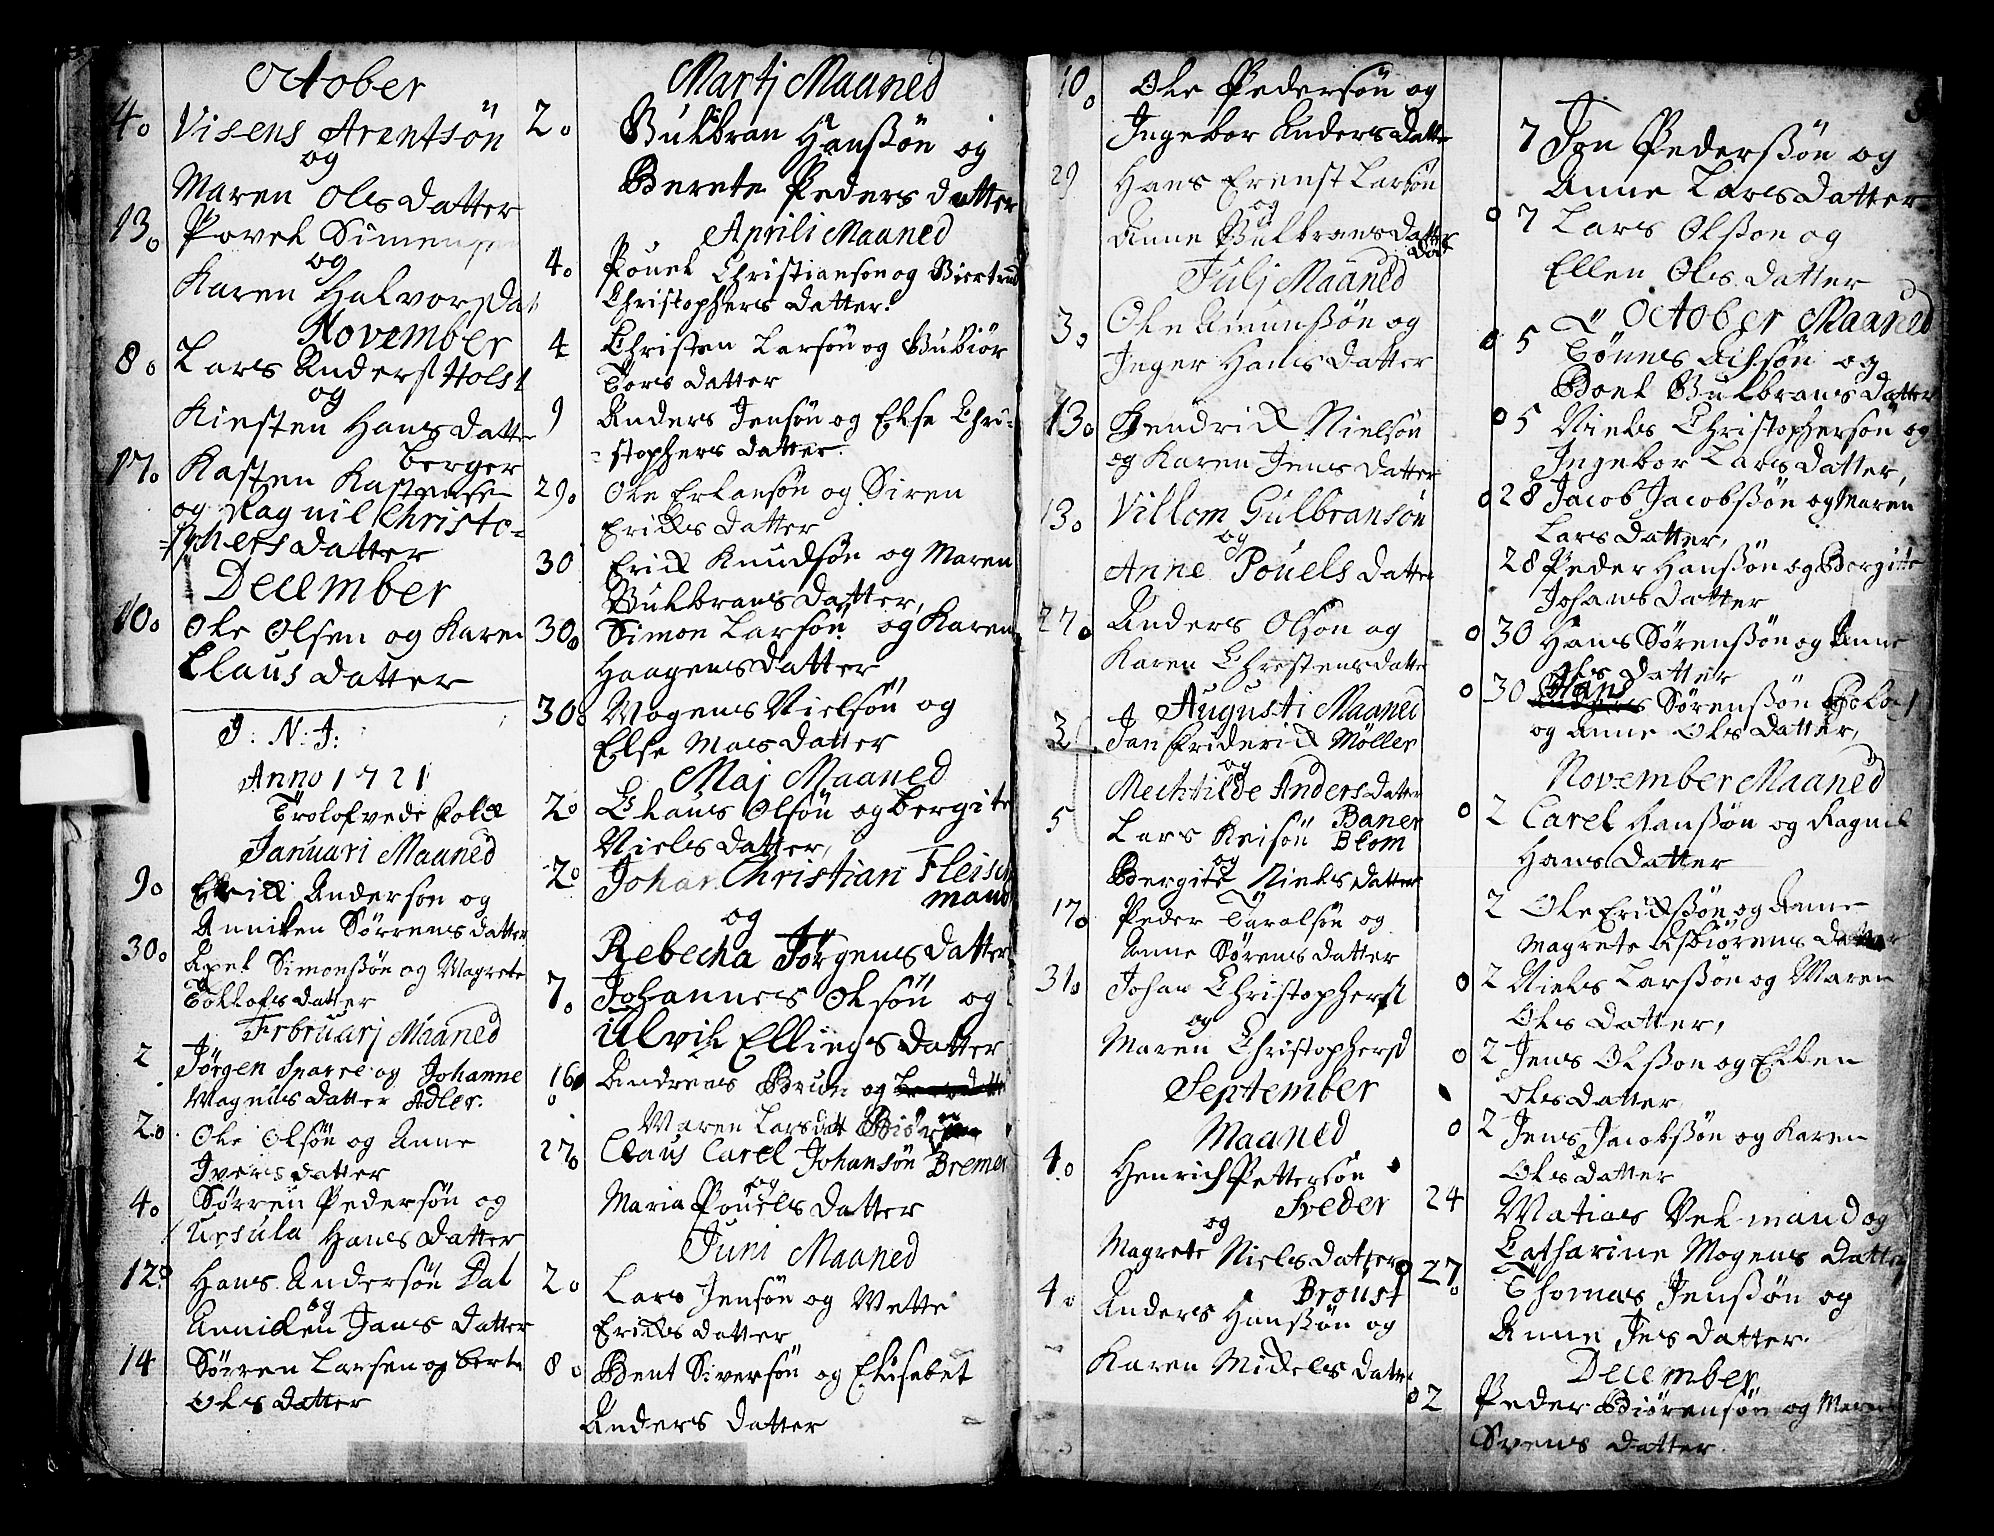 October
4 Visens Arentsön
og
Maren Olsdatter
13 Povel Simensen
og
Karen Halvorsdat
November
8 Lars Anders Holst
og
Kirsten Hansdatter
17 Kasten Kastense berger
og Ragnil Christo-
-phersdatter
December
10 Ole Olsen og Karen
Claus datter
J: N: J:
Anno 1721
Trolofvede Folck
Januari Maaned
9 Erick Anderson og
Anniken Sörrens datter
30 Axel Simonssön og Magrete
Tollofs datter
Februarj Maaned
2 Jörgen Sparre og Johanne
Magnus datter Adler.
2 Ole Olsön og Anne
Ivers datter
4 Sörren Pedersön og
Ursula Hans datter
12 Hans Andersön Dal
og
Annicken Jans datter
14 Sören Larsen og berte
Ols datter
Martj Maaned
2 Gulbran Hanssön og
Berete Peders datter
Aprili Maaned
4 Pouel Christianson og Giertrud
Christophers datter.
4 Christen Larsön og Gubiör
Tors datter
9 Anders Jensön og Else Chri-
-stophers datter.
29 Ole Erlansön og Siren
Ericks datter
30 Erick Knudsön og Maren
Gulbrans datter,
30 Simon Larsön og Karen
Haagens datter
30 Mogens Nielsön og
Else Mas datter
Maj Maaned
2 Claus Olsön og Bergite
Niels datter,
2 Johan Christian Fleisch
mand
og
Rebecka Jörgens datter
7 Johannes Olsön og
Ulvik Ellings datter
16 Andreas Brun og
Maren Lars datt
27 Claus Carel Johansön Bremer
og
Maria Pouels datter
Juni Maaned
2 Lars Jensön og Mette
Ericks datter
8 Bent Siversön og Elisabet
Anders datter
10 Ole Pedersön og
Ingebor Anders datter
29 Hans Ernst Larsön
og
Anne Gulbrans datter
Julj Maaned
3 Ole Amunssön og
Inger Hans datter
13 Hendrick Nielsön
og Karen Jens datter
13 Villom Gulbransön
og
Anne Pouels datter
27 Anders Olsön og
Karen Christens datte
Augusti Maaned
3 Jan Friderick Möller
og
Mechtilde Anders datter
Baner
5 Lars Keisön Blom
og
Bergite Niels datter
17 Peder Taralsön og
Anne Sörens datter
31 Johan Christophers
og
Maren Christophersd
September
Maaned
4 Henrich Pettersön
Sveder
og
Magrete Niels datter
Broust
4 Anders Hanssön og
Karen Mickels datter
7 Jon Pederssön og
Anne Lars datter
7 Lars Olsson og
Ellen Ols datter
October Maaned
5 Tönnes Ailsön og
Boel Gulbrans datter
5 Niels Christophersön og
Ingebor Lars datter,
28 Jacob Jacobssön og Maren
Lars datter,
28 Peder Hanssön og Bergitte
Johans datter
30 Hans Sörenssön og Anne
Ols datter
30 Hans Sörenssön
og Anne Ols datter,
November Maaned
2 Carel Hanssön og Ragnel
Hans datter
2 Ole Erickssön og Anne
Magrete Asbiörens datter
2 Niels Larssön og Maren
Ols datter,
2 Jens Olsson og Ellen
Ols datter
2 Jens Jacobssön og Karen
Ols datter
24 Matias Velmand og
Catharine Mogens datter
27 Thomas Jenssön og
Anne Jes datter.
December
2 Peder Biörensön og Maren
Svens datter.